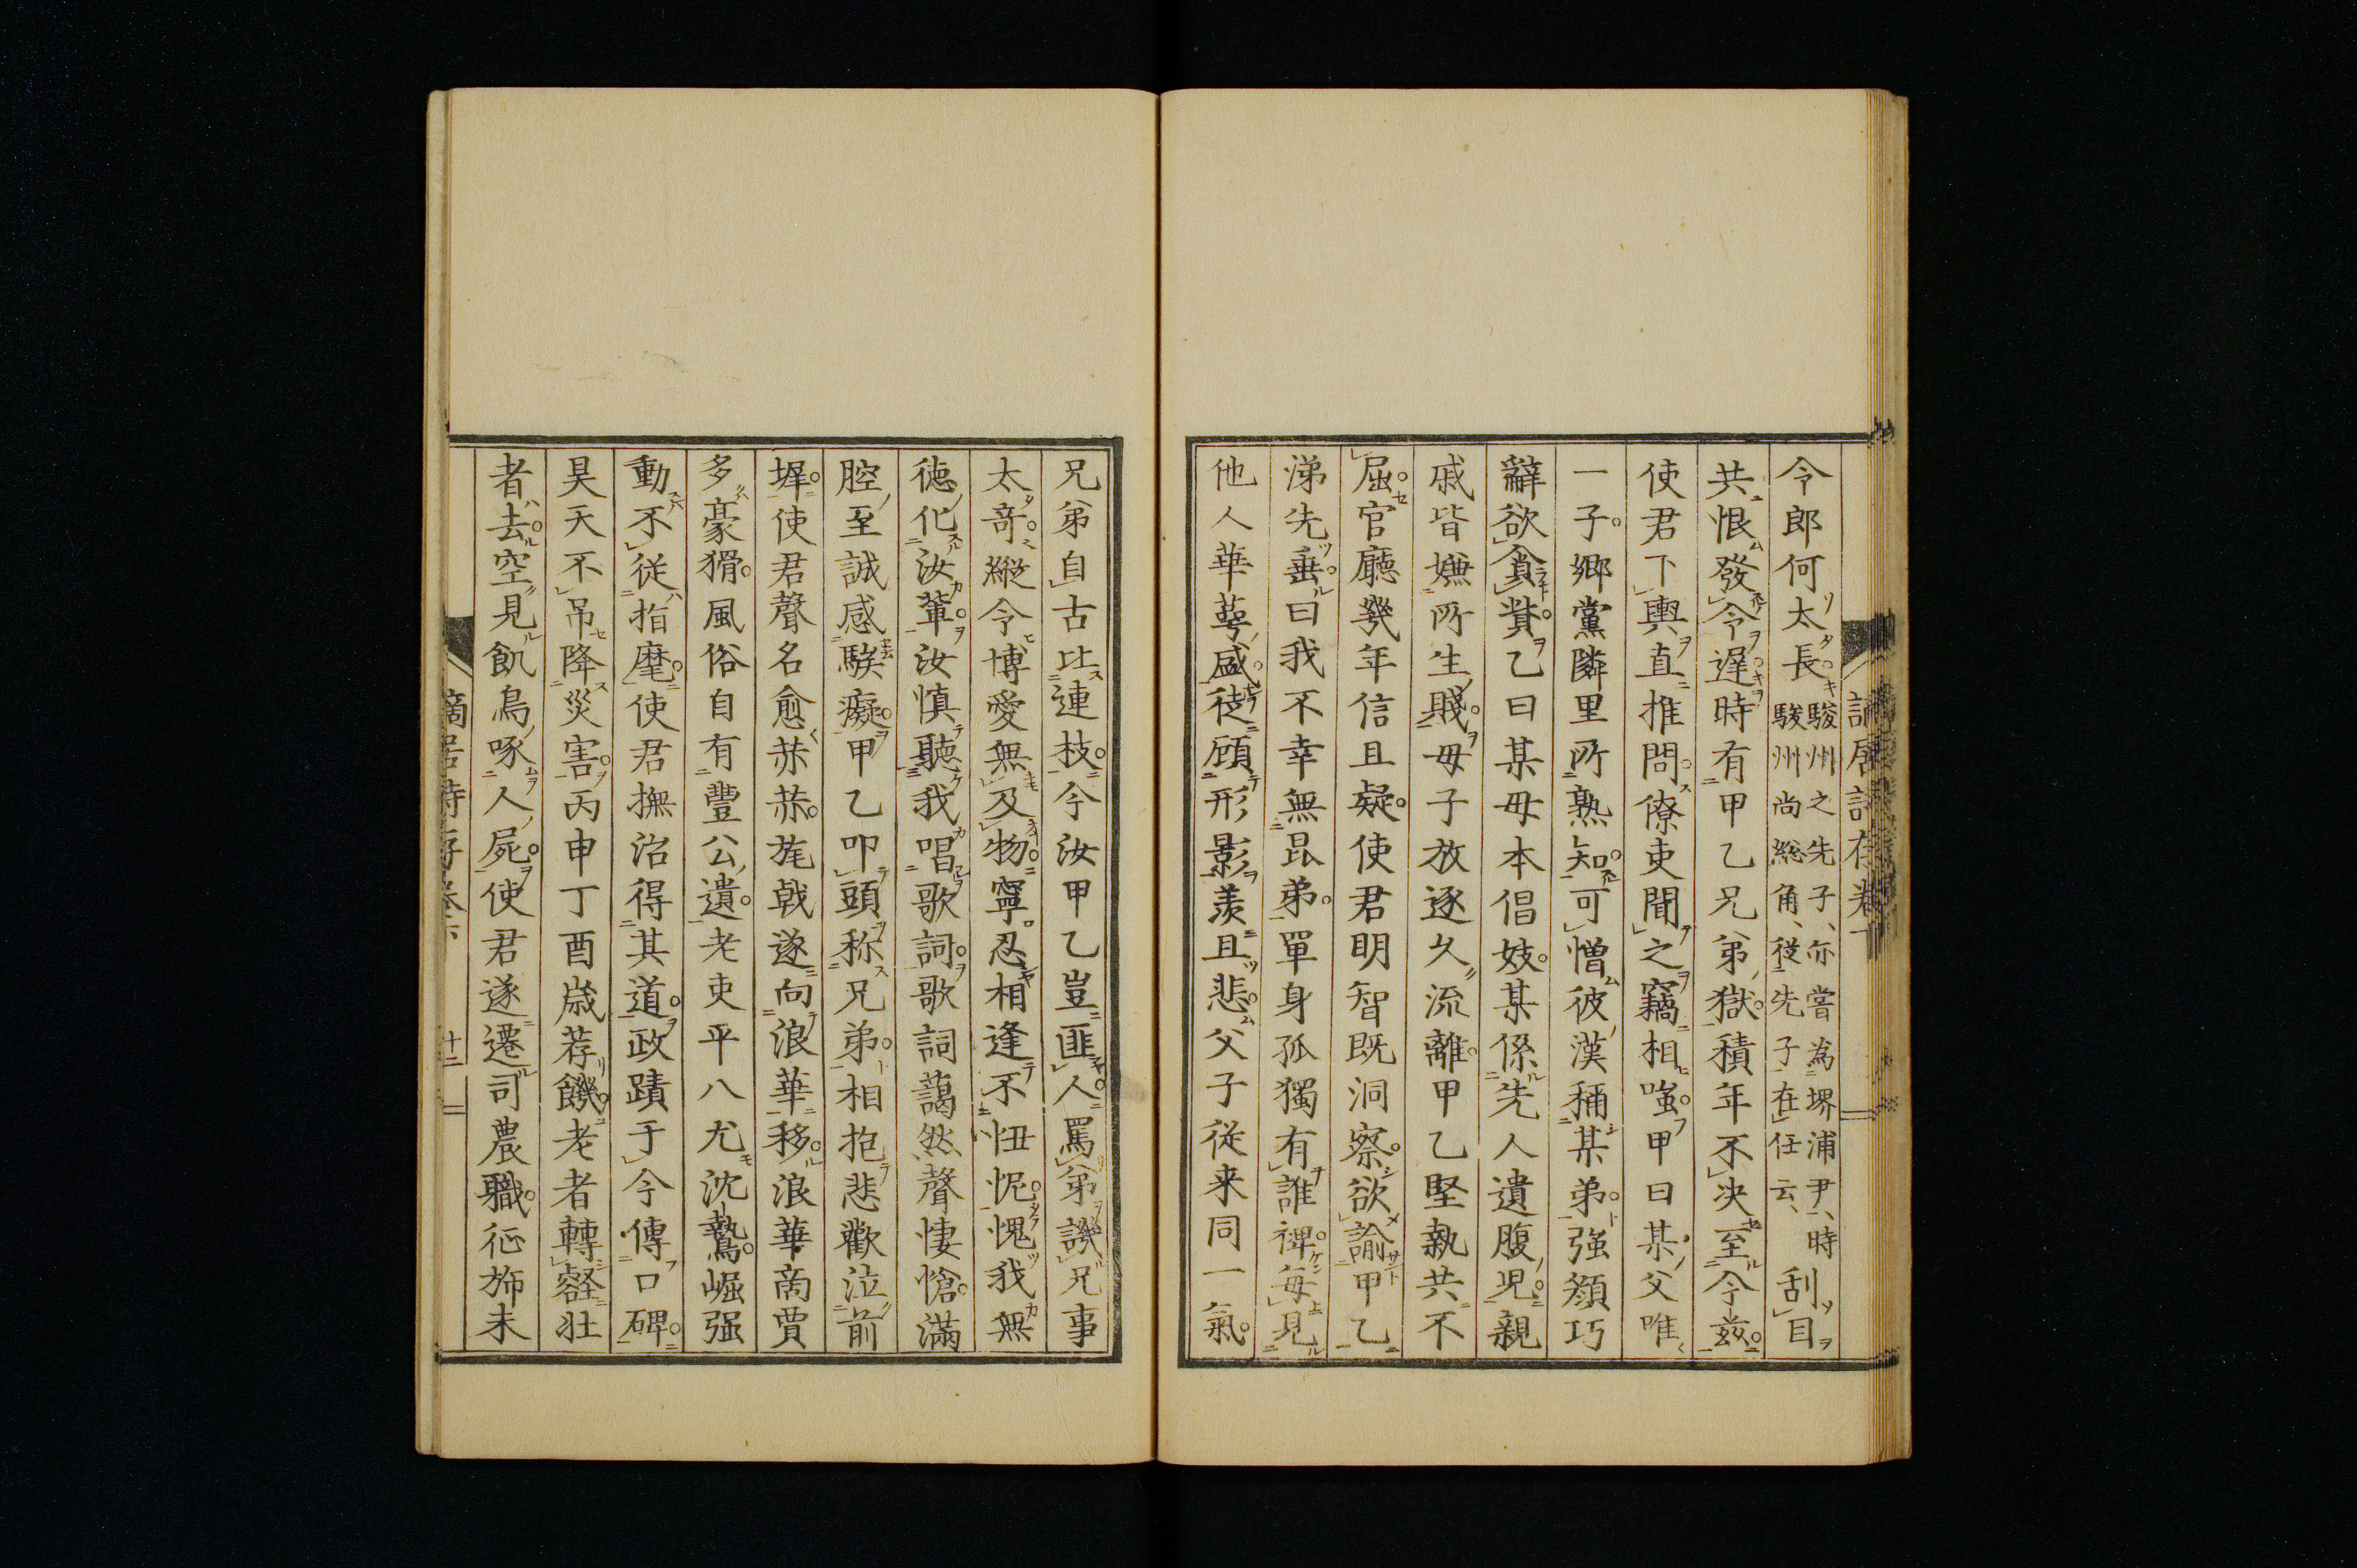 令郎何太長駿州之先子、亦嘗為堺浦尹、時駿州尚総角、従先子在任云、刮目
共恨發令遅時有甲乙兄弟獄積年不决至今茲
使君下輿直推問僚吏聞之竊相嗤甲曰某父唯
一子鄉黨隣里所熟知可憎彼漢稱某弟強顔巧
辭欲貪貲乙曰某母本倡妓某係先人遺腹児親
戚皆嫌所生賤母子放逐久流離甲乙堅執共不
屈官廳幾年信且疑使君明智既洞察欲諭甲乙
涕先垂曰我不幸無昆弟單身孤獨有誰裨每見
他人華萼盛徒顧形影羨且悲父子従来同一氣
兄弟自古比連枝今汝甲乙豈匪人罵弟譏兄事
太奇縱令博愛無及物寧忍相逢不忸怩愧我無
徳化汝輩汝慎聽我唱歌詞歌詞藹然聲悽愴滿
腔至誠感騃癡甲乙叩頭称兄弟相抱悲歡泣前
墀使君聲名愈赫赫旄戟遂向浪華移浪華商賈
多豪猾風俗自有豐公遺老吏平八尤沈鷙崛强
動不従指麾使君撫治得其道政蹟于今傳口碑
昊天不吊降災害丙申丁酉歳荐饑老者轉壑壮
者去空見飢烏啄人屍使君遂遷司農職征斾未
十二